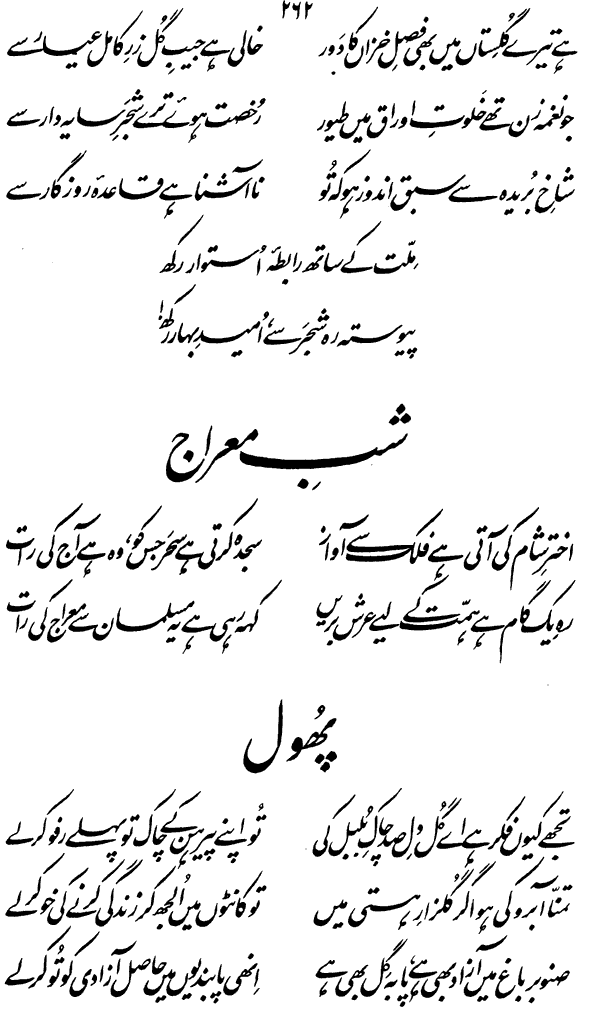 ۲۶۲
ہے تیرے گلستاں میں بھی فصلِ خزاں کا دَور خالی ہے جیبِ گُل زرِ کامل عیار سے
جو نغمہ زن تھے خَلوتِ اوراق میں طیور رُخصت ہوئے ترے شجرِ سایہ دار سے
شاخِ بُریدہ سے سبق اندوز ہو کہ تُو ناآشنا ہے قاعدۂ روزگار سے
مِلّت کے ساتھ رابطۂ اُستوار رکھ
پیوستہ رہ شجر سے، اُمیدِ بہار رکھ!
شبِ معراج
اخترِ شام کی آتی ہے فلک سے آواز سجدہ کرتی ہے سحر جس کو، وہ ہے آج کی رات
رہِ یک گام ہے ہمّت کے لیے عرشِ بریں کہہ رہی ہے یہ مسلمان سے معراج کی رات
پھُول
تجھے کیوں فکر ہے اے گُل دلِ صد چاکِ بُلبل کی تُو اپنے پیرہن کے چاک تو پہلے رفو کر لے
تمنّا آبرو کی ہو اگر گلزارِ ہستی میں تو کانٹوں میں اُلجھ کر زندگی کرنے کی خو کر لے
صنوبر باغ میں آزاد بھی ہے، پا بہ گِل بھی ہے اِنھی پابندیوں میں حاصل آزادی کو تُو کر لے